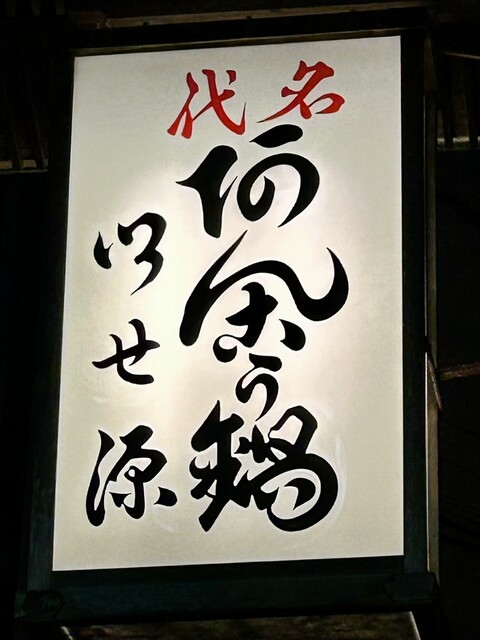 名代
あんこう鍋
いせ源